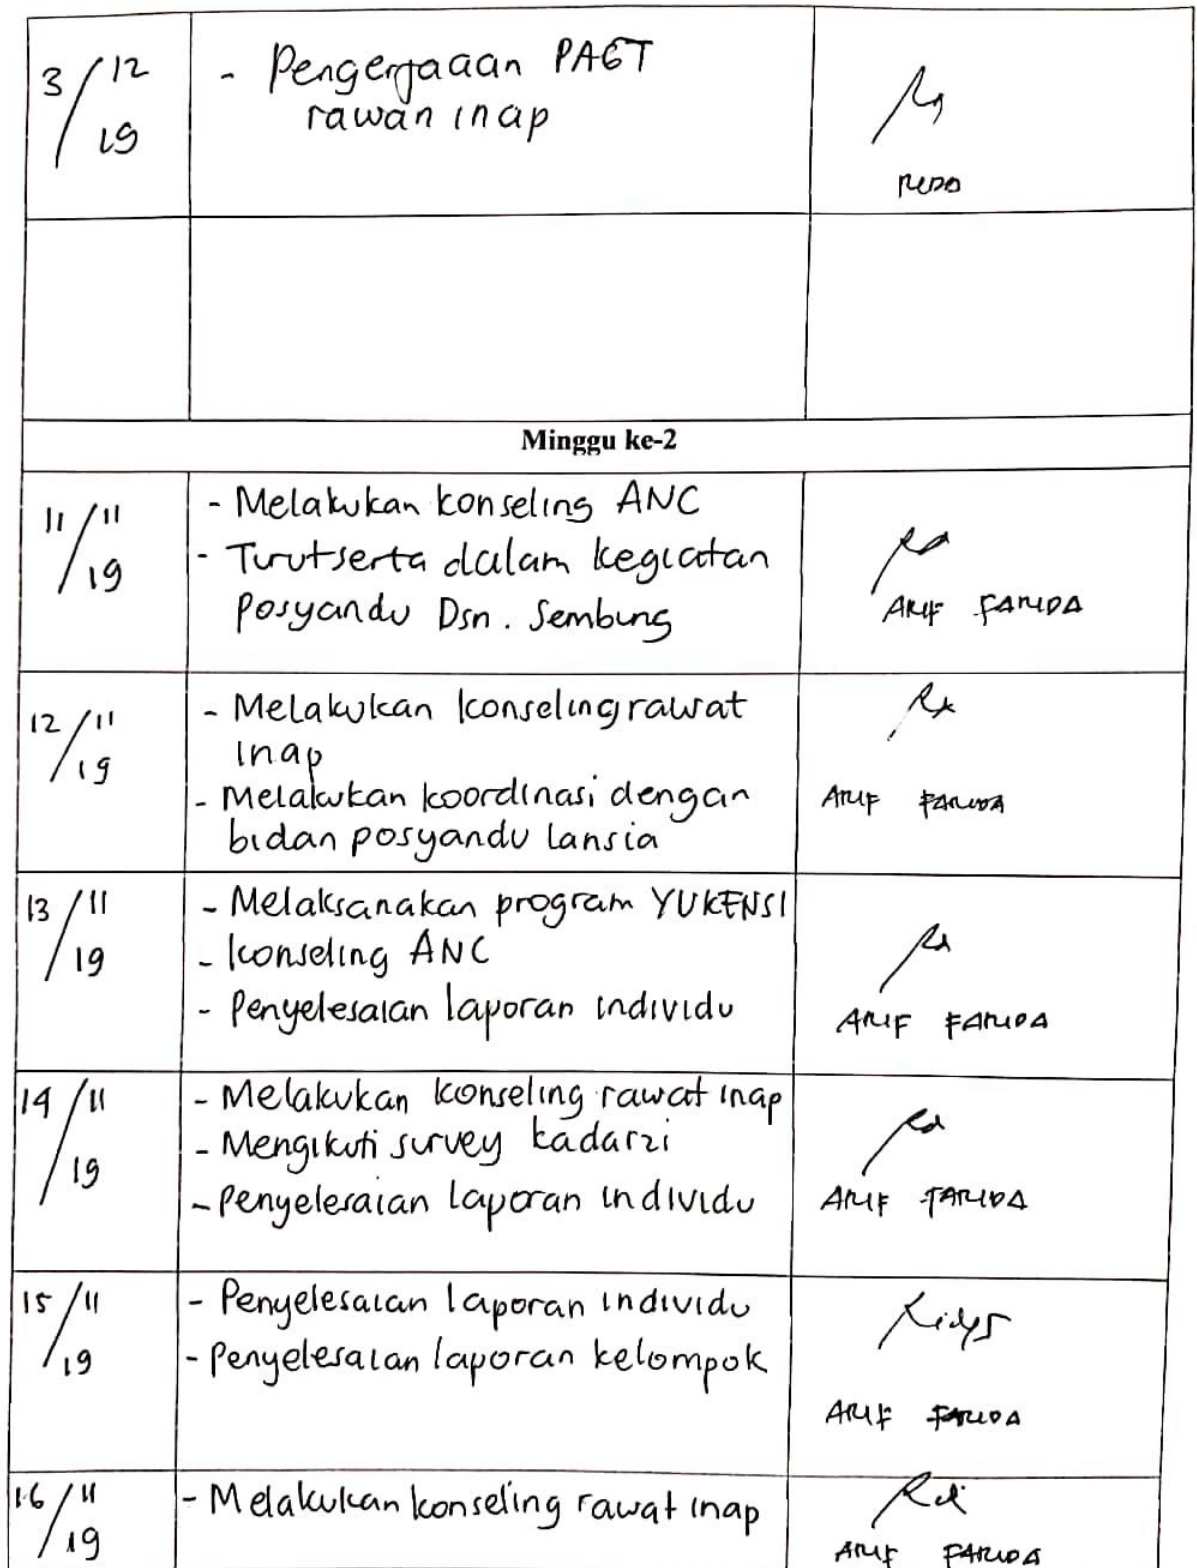 3/12
19
- Pengerjaaan PAGT
rawan inap
Minggu ke-2
11/11
19
- Melakukan konseling ANC
- Turutserta dalam kegiatan
posyandu Dsn. Sembung
ARIF FARIDA
12/11
19
- Melakukan konseling rawat
inap
- Melakukan koordinasi dengan
bidan posyandu lansia
ARIF FARIDA
13/11
19
- Melaksanakan program YUKENSI
- konseling ANC
- Penyelesaian laporan individu
ARIF FARIDA
14/11
19
- Melakukan konseling rawat inap
- Mengikuti survey kadarzi
- Penyelesaian laporan individu
ARIF FARIDA
15/11
19
- Penyelesaian laporan individu
- Penyelesaian laporan kelompok
ARIF FARIDA
16/11
19
- Melakukan konseling rawat inap
ARIF FARIDA